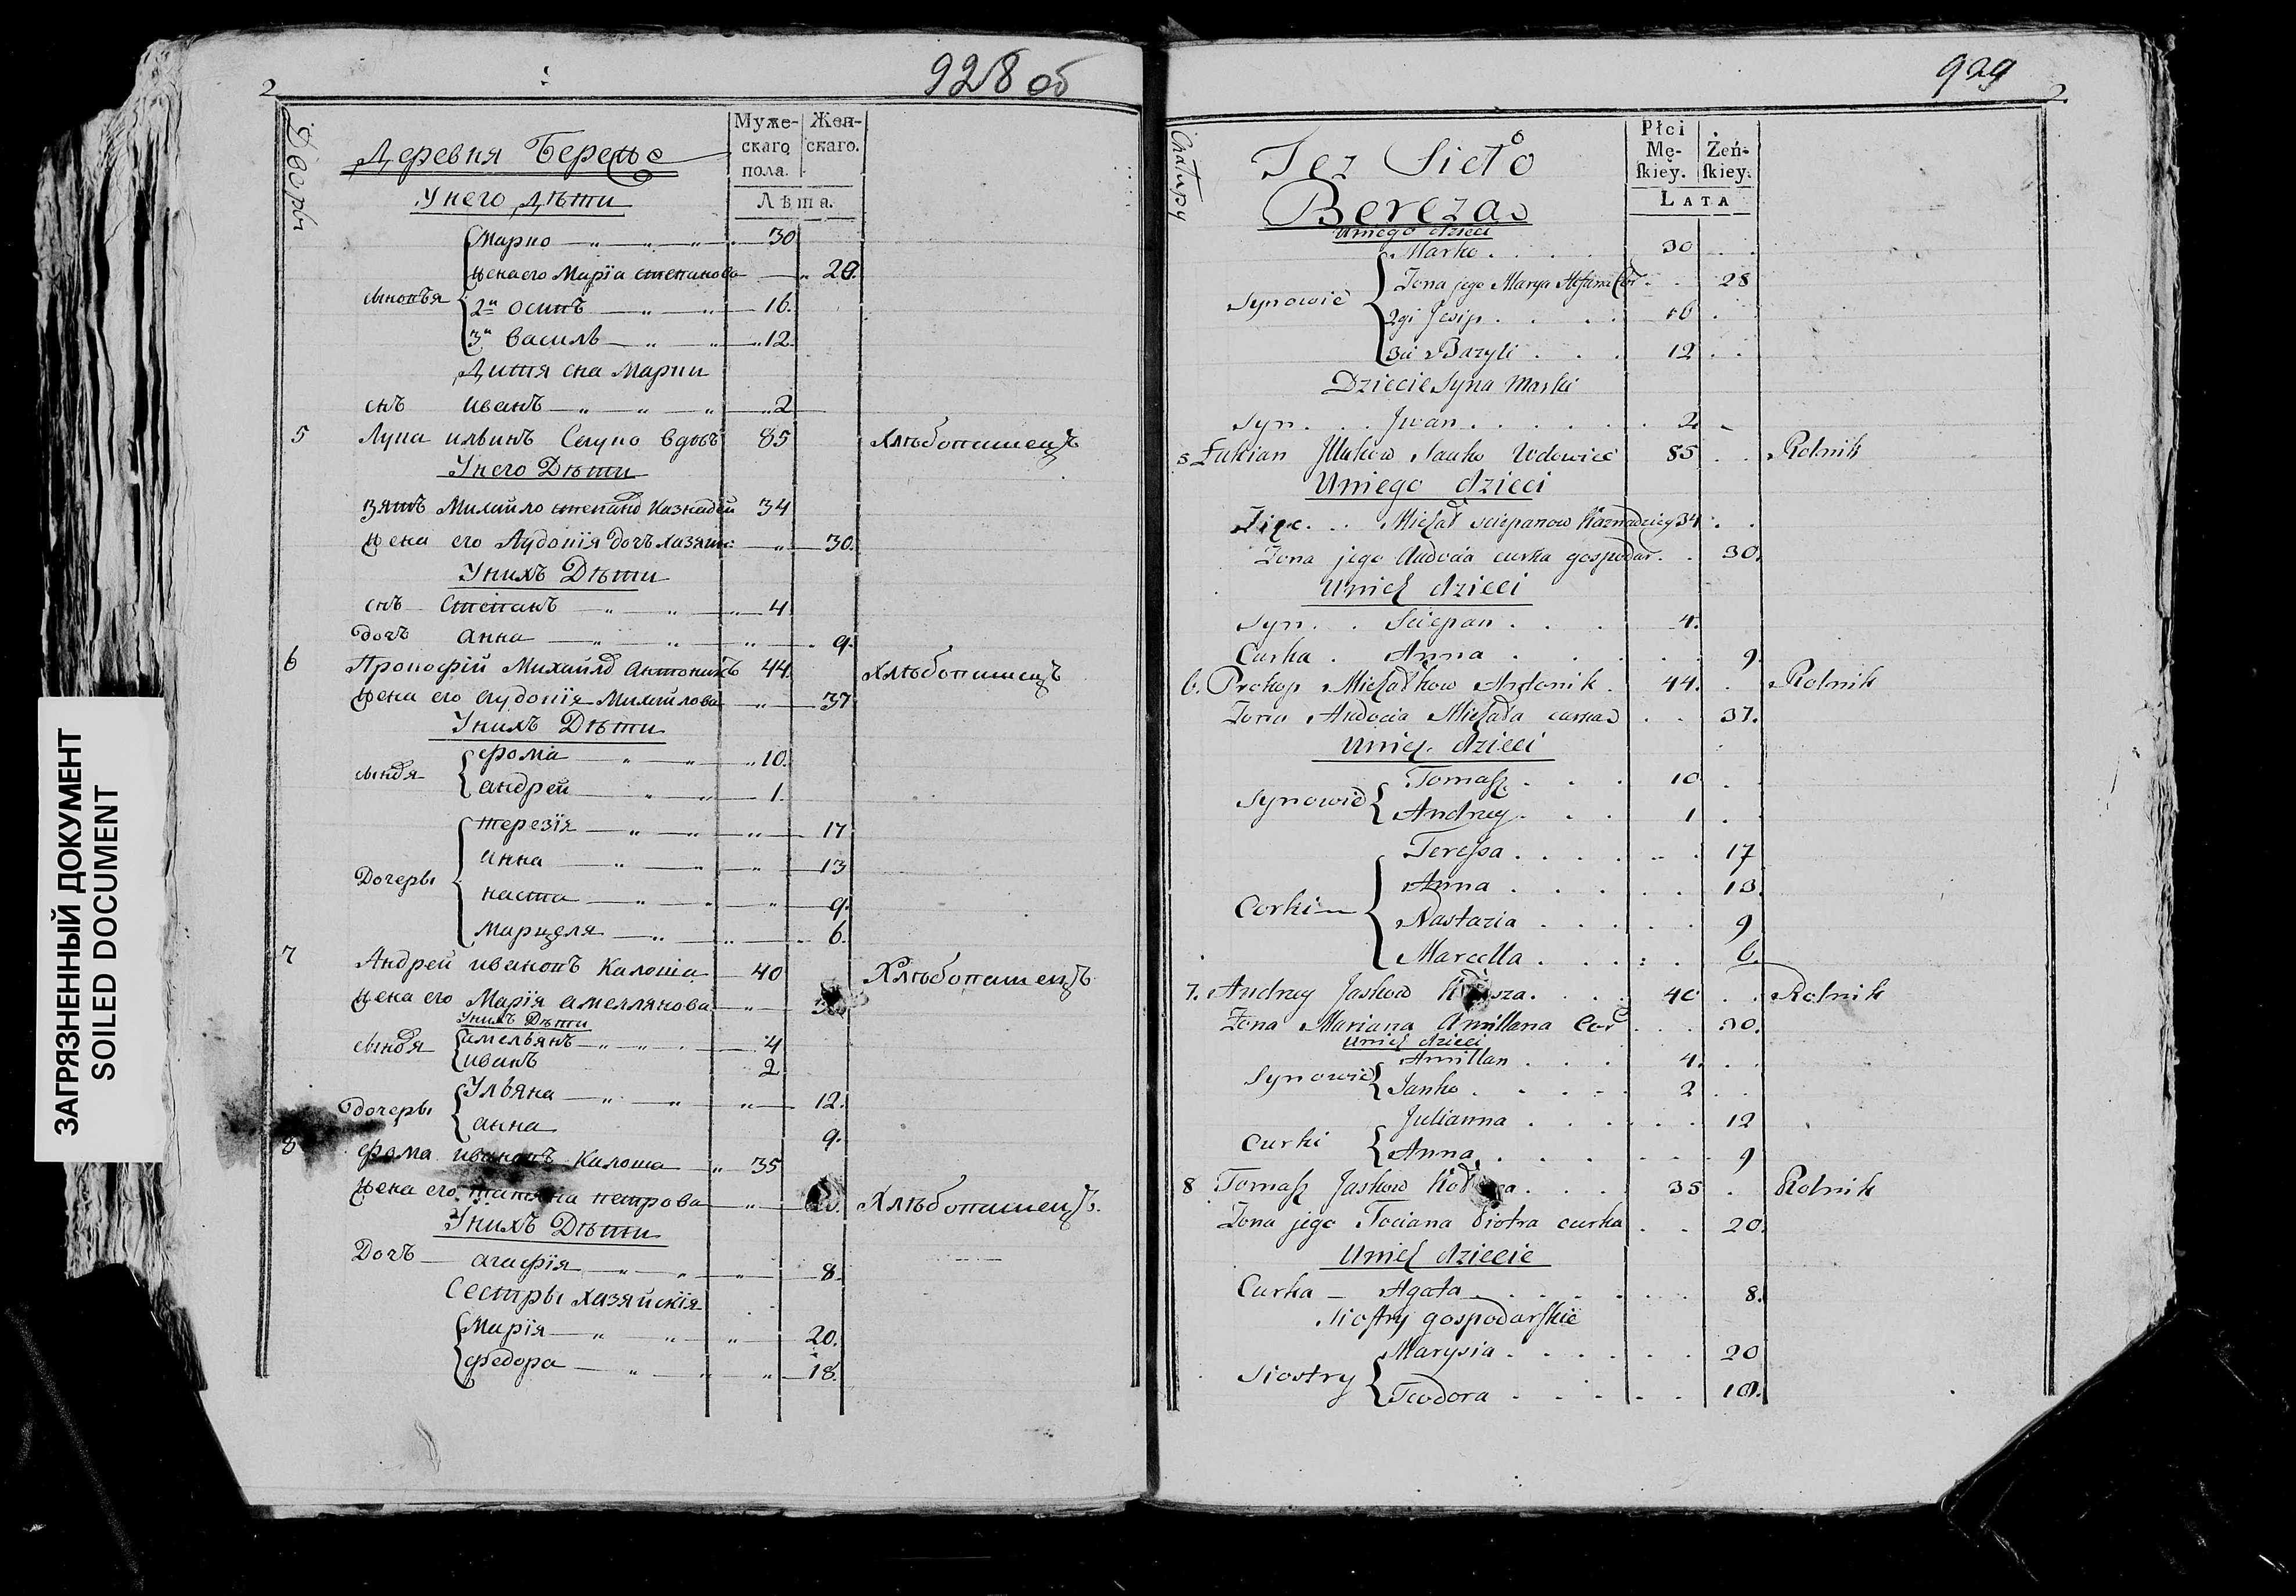 ЗАГРЯЗНЕННЫЙ ДОКУМЕНТ
SOILED DOCUMENT
2
928 об
Дворы
Деревня
Муже-
скаго
пола.
Жен-
скаго.
Лѣта.
У него дѣти
Марко 30
жена его Марїа степанова
сыновья
2й осипъ 16.
3й василь 12.
Дитя сна Марки
снъ иванъ 2
5 Лука ильинъ вдовъ 85 Хлѣбопашецъ
У него Дѣти
зять Михайло степановъ Казнадѣй 34
жена его Аудокїя дочъ хазяин: 30.
У нихъ Дѣти
снъ Степанъ 4
дочъ анна 9.
6 Прокофїй Михайловъ Антоникъ 44. хлѣбопашецъ
жена его Аудокїя Михайлова 37
У нихъ Дѣти
сыновя
фома 10.
андрей 1.
Дочеры
терезїя 17
анна 13
наста 9.
Марцеля 6.
7 Андрей ивановъ Калоша 40 Хлѣбопашецъ
жена его Марїя амеллянова
У нихъ Дѣти
сыновя
амельянъ 4
иванъ 2
дочеры
Ульяна 12.
анна 9.
8 фома ивановъ Калоша 35
жена его татяна петрова Хлѣбопашецъ.
У нихъ Дѣти
Дочъ агафїя 8
Сестры хазяйскїя
Марїя 20.
федора 18.
929
2.
Chałupy
Tez Sioło
Bereza
Płci
Mę-
skiey.
Żeń-
skiey.
LATA
U niego dzieci
Marko 30
Synowie
Zona jego Marya 28
2gi Josip 16
3ci Bazyli 12
Dziecie Syna Marki
Syn Jwan 2
5 Łukian Wdowiec 85 Rolnik
U niego dzieci
Zięc Michał sciepanow Kaznadziey 34
Zona jego Audocia curka gospodar. 30.
U nich dzieci
Syn Sciepan 4.
Curka Anna 9.
6. Prokop Michałkow Antonik 44. Rolnik
Zona Audocia Michała curka 37.
U nich dzieci
Synowie
Tomasz 10
Andrzey 1
Corki
Teressa 17
Anna 13.
Nastazia 9
Marcella 6.
7. Andrzey Jaskow 40 Rolnik
Zona Mariana Amillana Cor 30.
U nich dzieci
Synowie
Amillan 4.
Janko 2
Curki
Julianna 12
Anna 9
8 Tomasz Jaskow 35 Rolnik
Zona jego Taciana Piotra curka 20.
U nich dziecie
Curka Agata 8.
Siostry gospodarskie
Siostry
Marysia 20
Teodora 18.